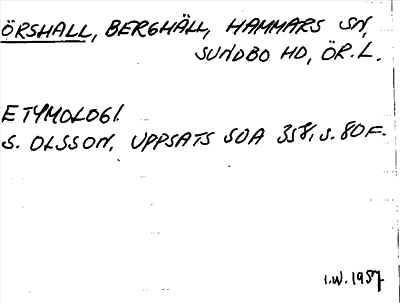 ÖRSHALL, BERGHÄLL, HAMMARS SN,
SUNDBO HD, ÖR.L.
ETYMOLOGI.
S. OLSSON, UPPSATS SOA 358, S. 80F.
I.W. 1957